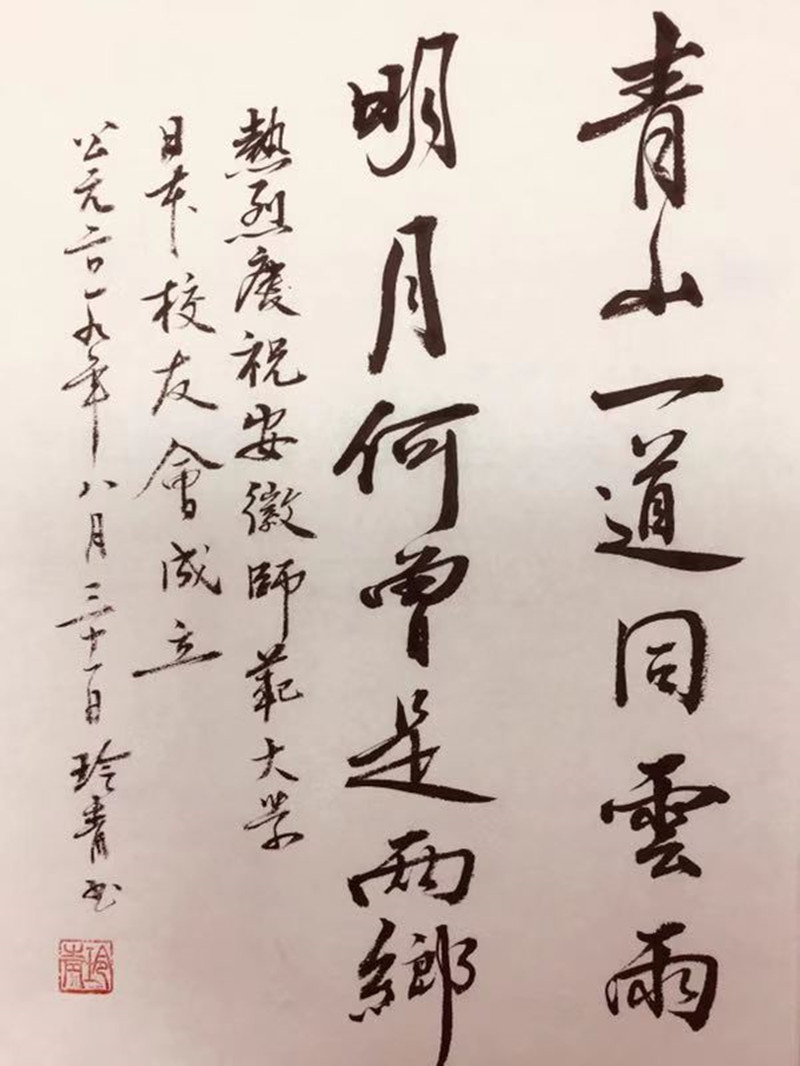 青山一道同雲雨
明月何曾是兩鄉
熱烈慶祝安徽師範大学
日本校友會成立
公元二〇一九年八月三十一日玲青书
玲青